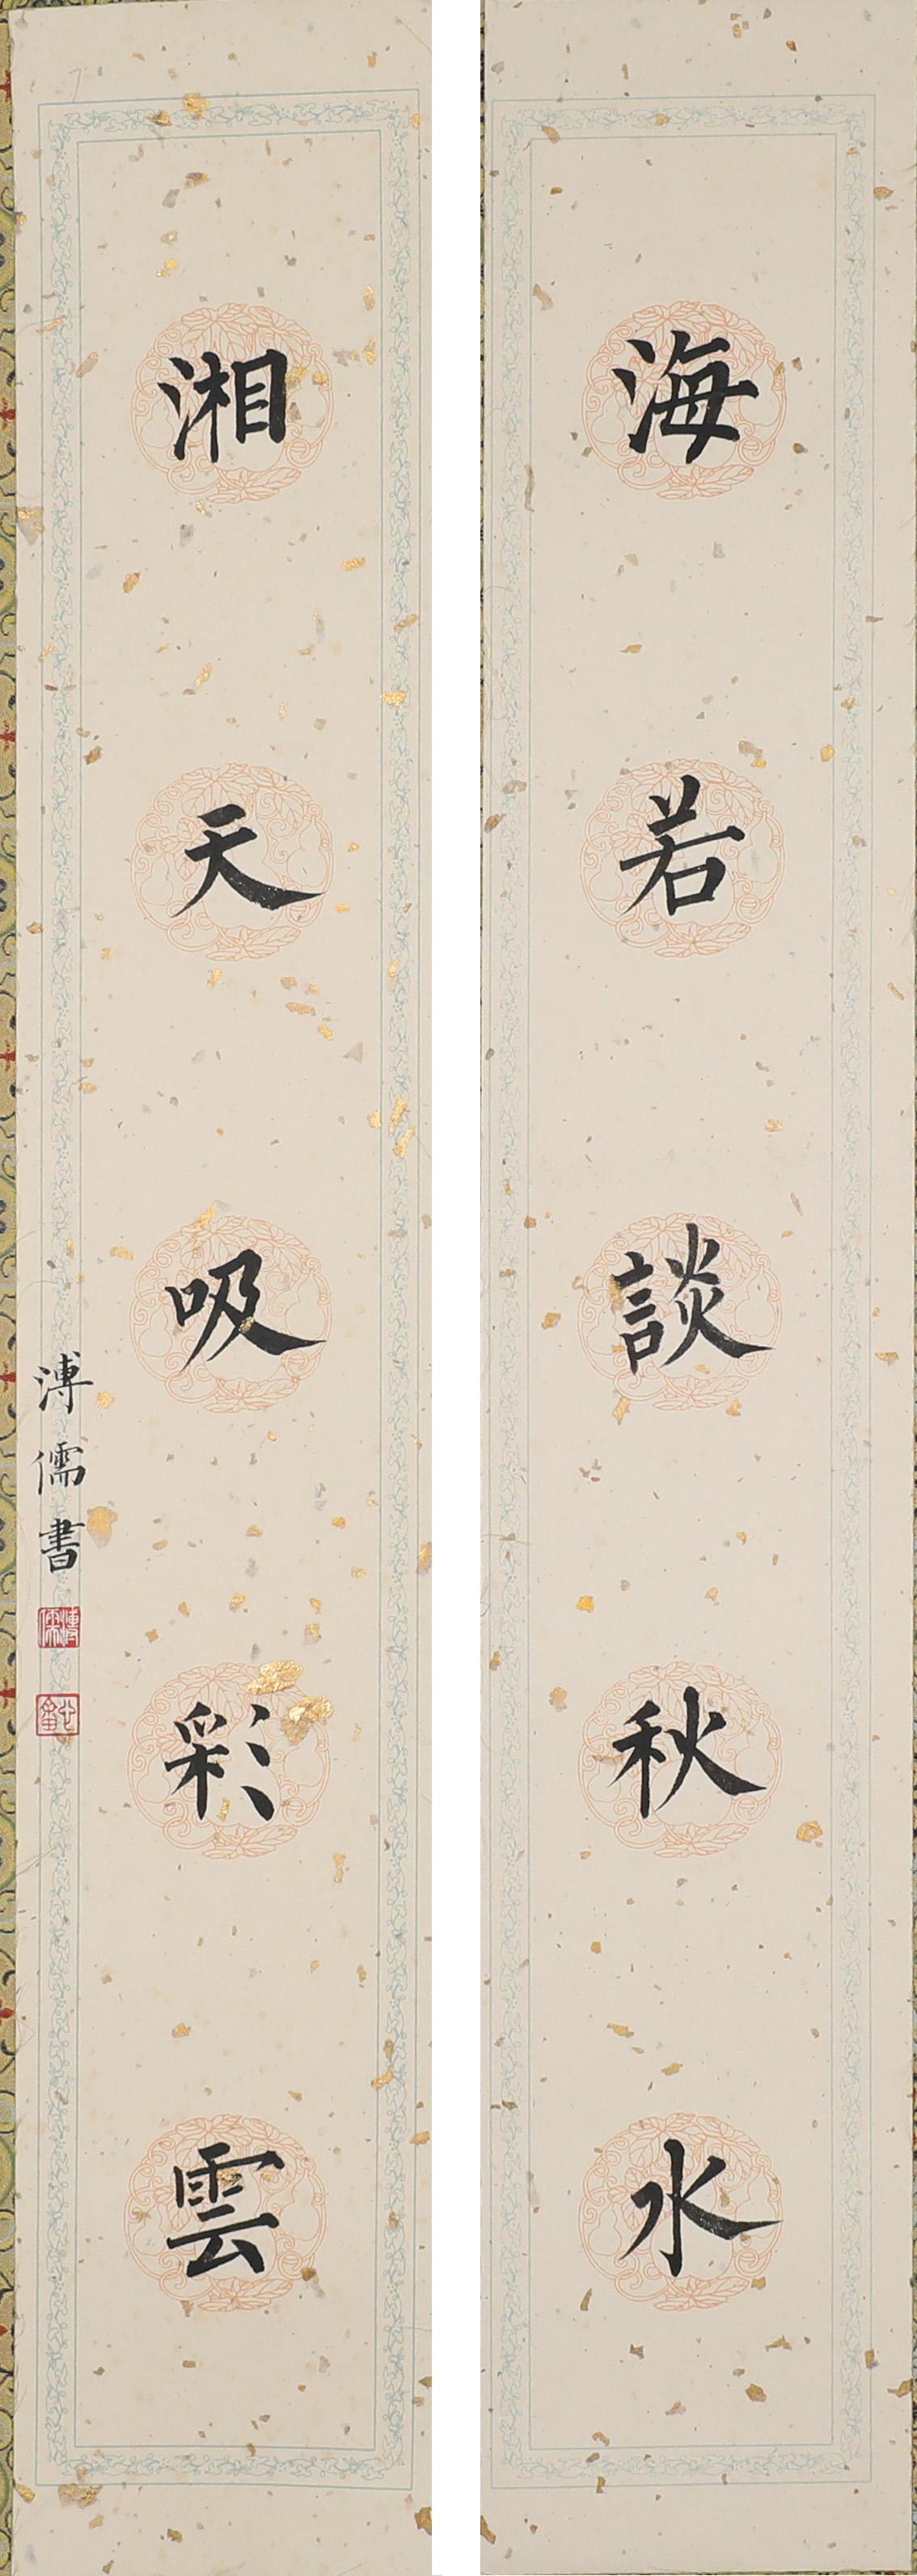 海若談秋水
湘天吸彩雲
溥儒書
溥儒
心畬